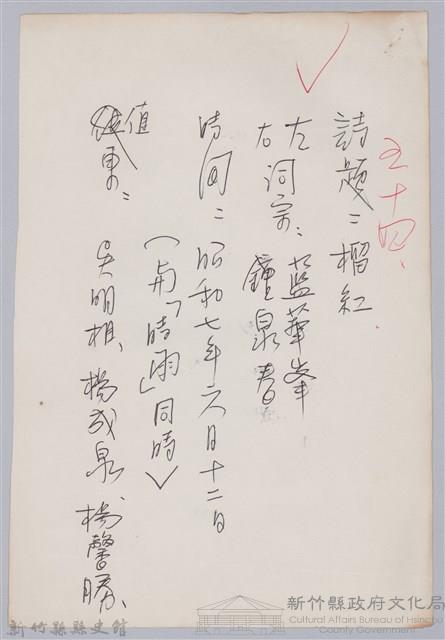 五十四、
詩題：榴紅
左右詞宗：藍華峯
鐘泉春
時間：昭和七年六月十二日
（与「時雨」同時）
值東：吳明相、楊成泉 楊馨勝、
新竹縣縣史館
新竹縣政府文化局
Cultural Affairs Bureau of Hsinchu
County Government